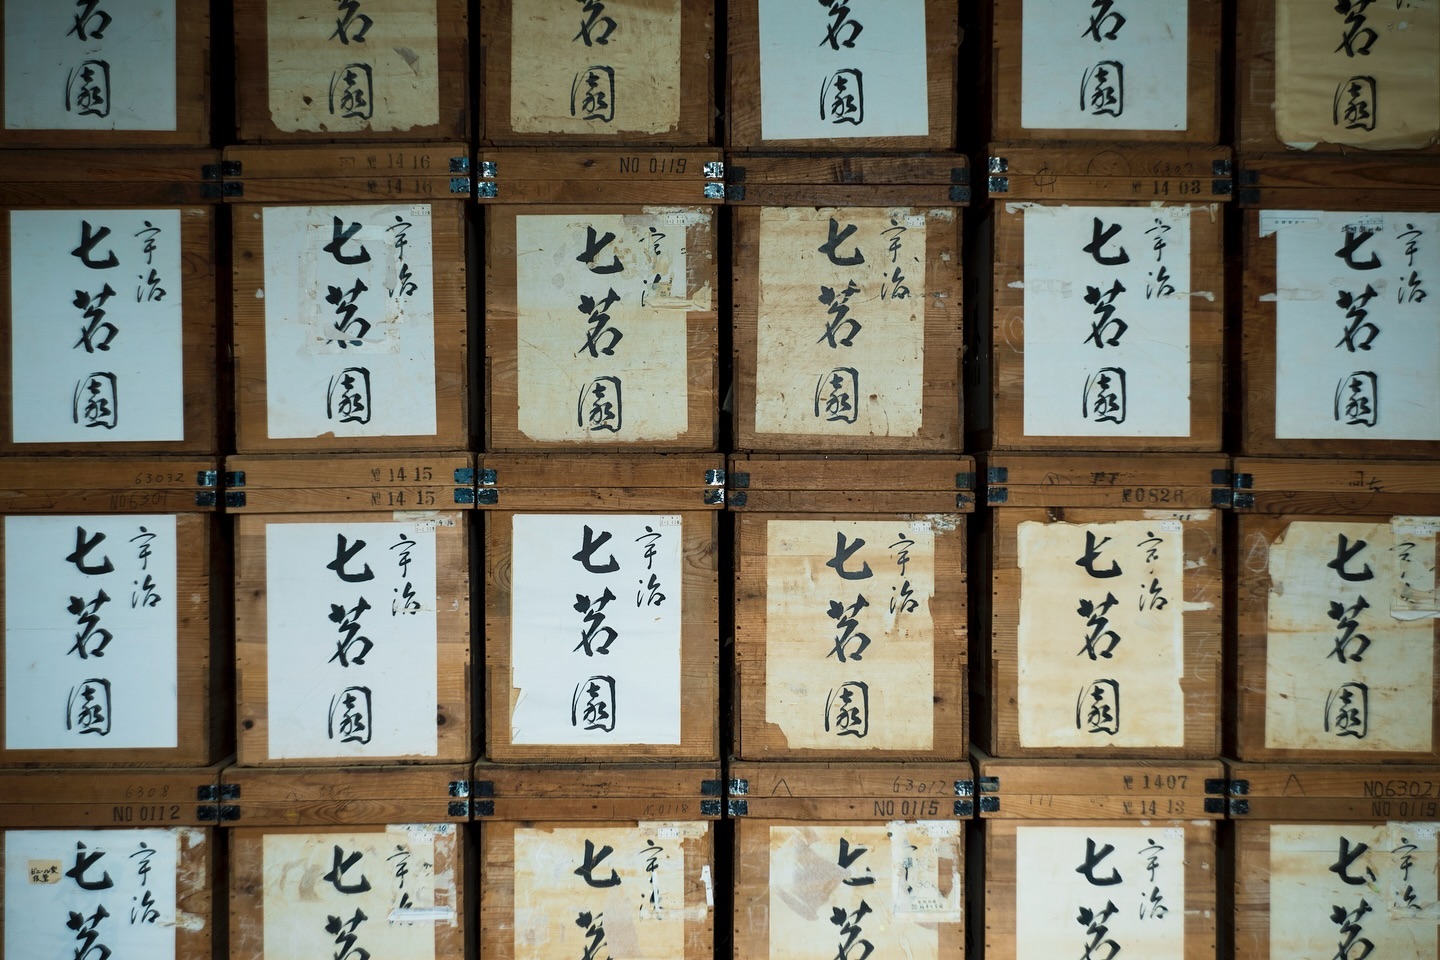 茗園
茗園
茗園
茗園
茗園
茗園
№ 14 16
№ 14 16
NO 0119
6307
№ 14 03
宇治
七茗園
宇治
七茗園
宇
七茗園
宇治
七茗園
宇治
七茗園
宇治
七茗園
63032
NO6301
№ 14 15
№ 14 15
№0826
宇治
七茗園
宇治
七茗園
宇治
七茗園
宇治
七茗園
宇治
七茗園
七茗園
6308
NO 0112
63012
NO 0115
№ 1407
№ 14 13
NO6302
NO 0119
宇治
七茗
宇治
七茗
宇治
七茗
七茗
宇治
七茗
宇治
七茗